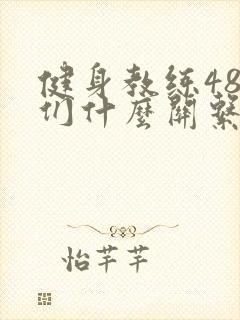 健身教练48
们什麼關繫
怡芊芊